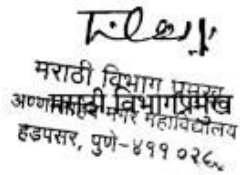 मराठी विभाग प्रमुख
मराठी विभागप्रमुख
मगर महाविद्यालय
हडपसर, पुणे-४११ ०२८.